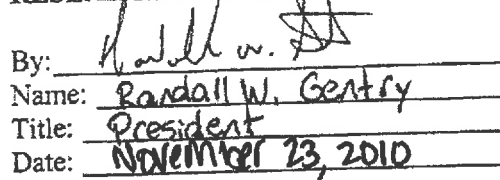 By:
Name: Randall W. Gentry
Title: President
Date: November 23, 2010